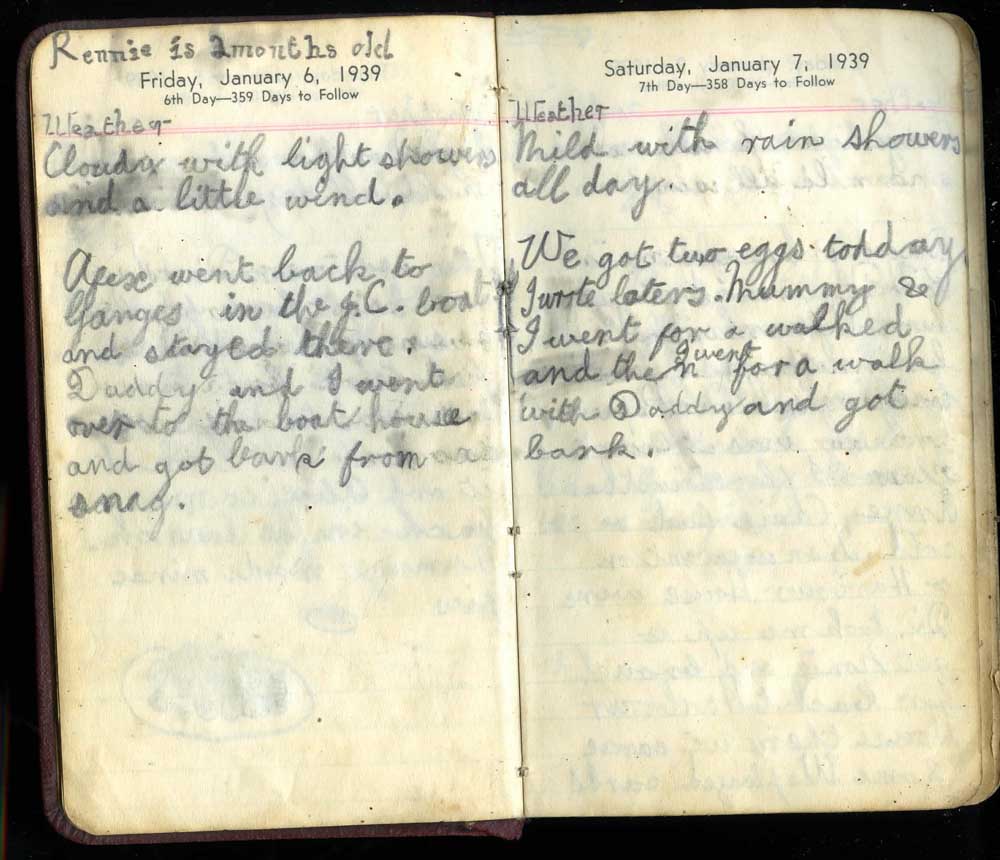 Rennie is 2 months old
Friday, January 6, 1939
6th Day—359 Days to Follow
Weather
Cloudy with light showers
and a little wind.
Alex went back to
Ganges in the J.C. boat
and stayed there.
Daddy and I went
over to the boat house
and got bark from a
snag.
Saturday, January 7, 1939
7th Day—358 Days to Follow
Weather
Mild with rain showers
all day.
We got two eggs todday
I wrote laters. Mummy &
I went for a walked
and then I went for a walk
with Daddy and got
bark.